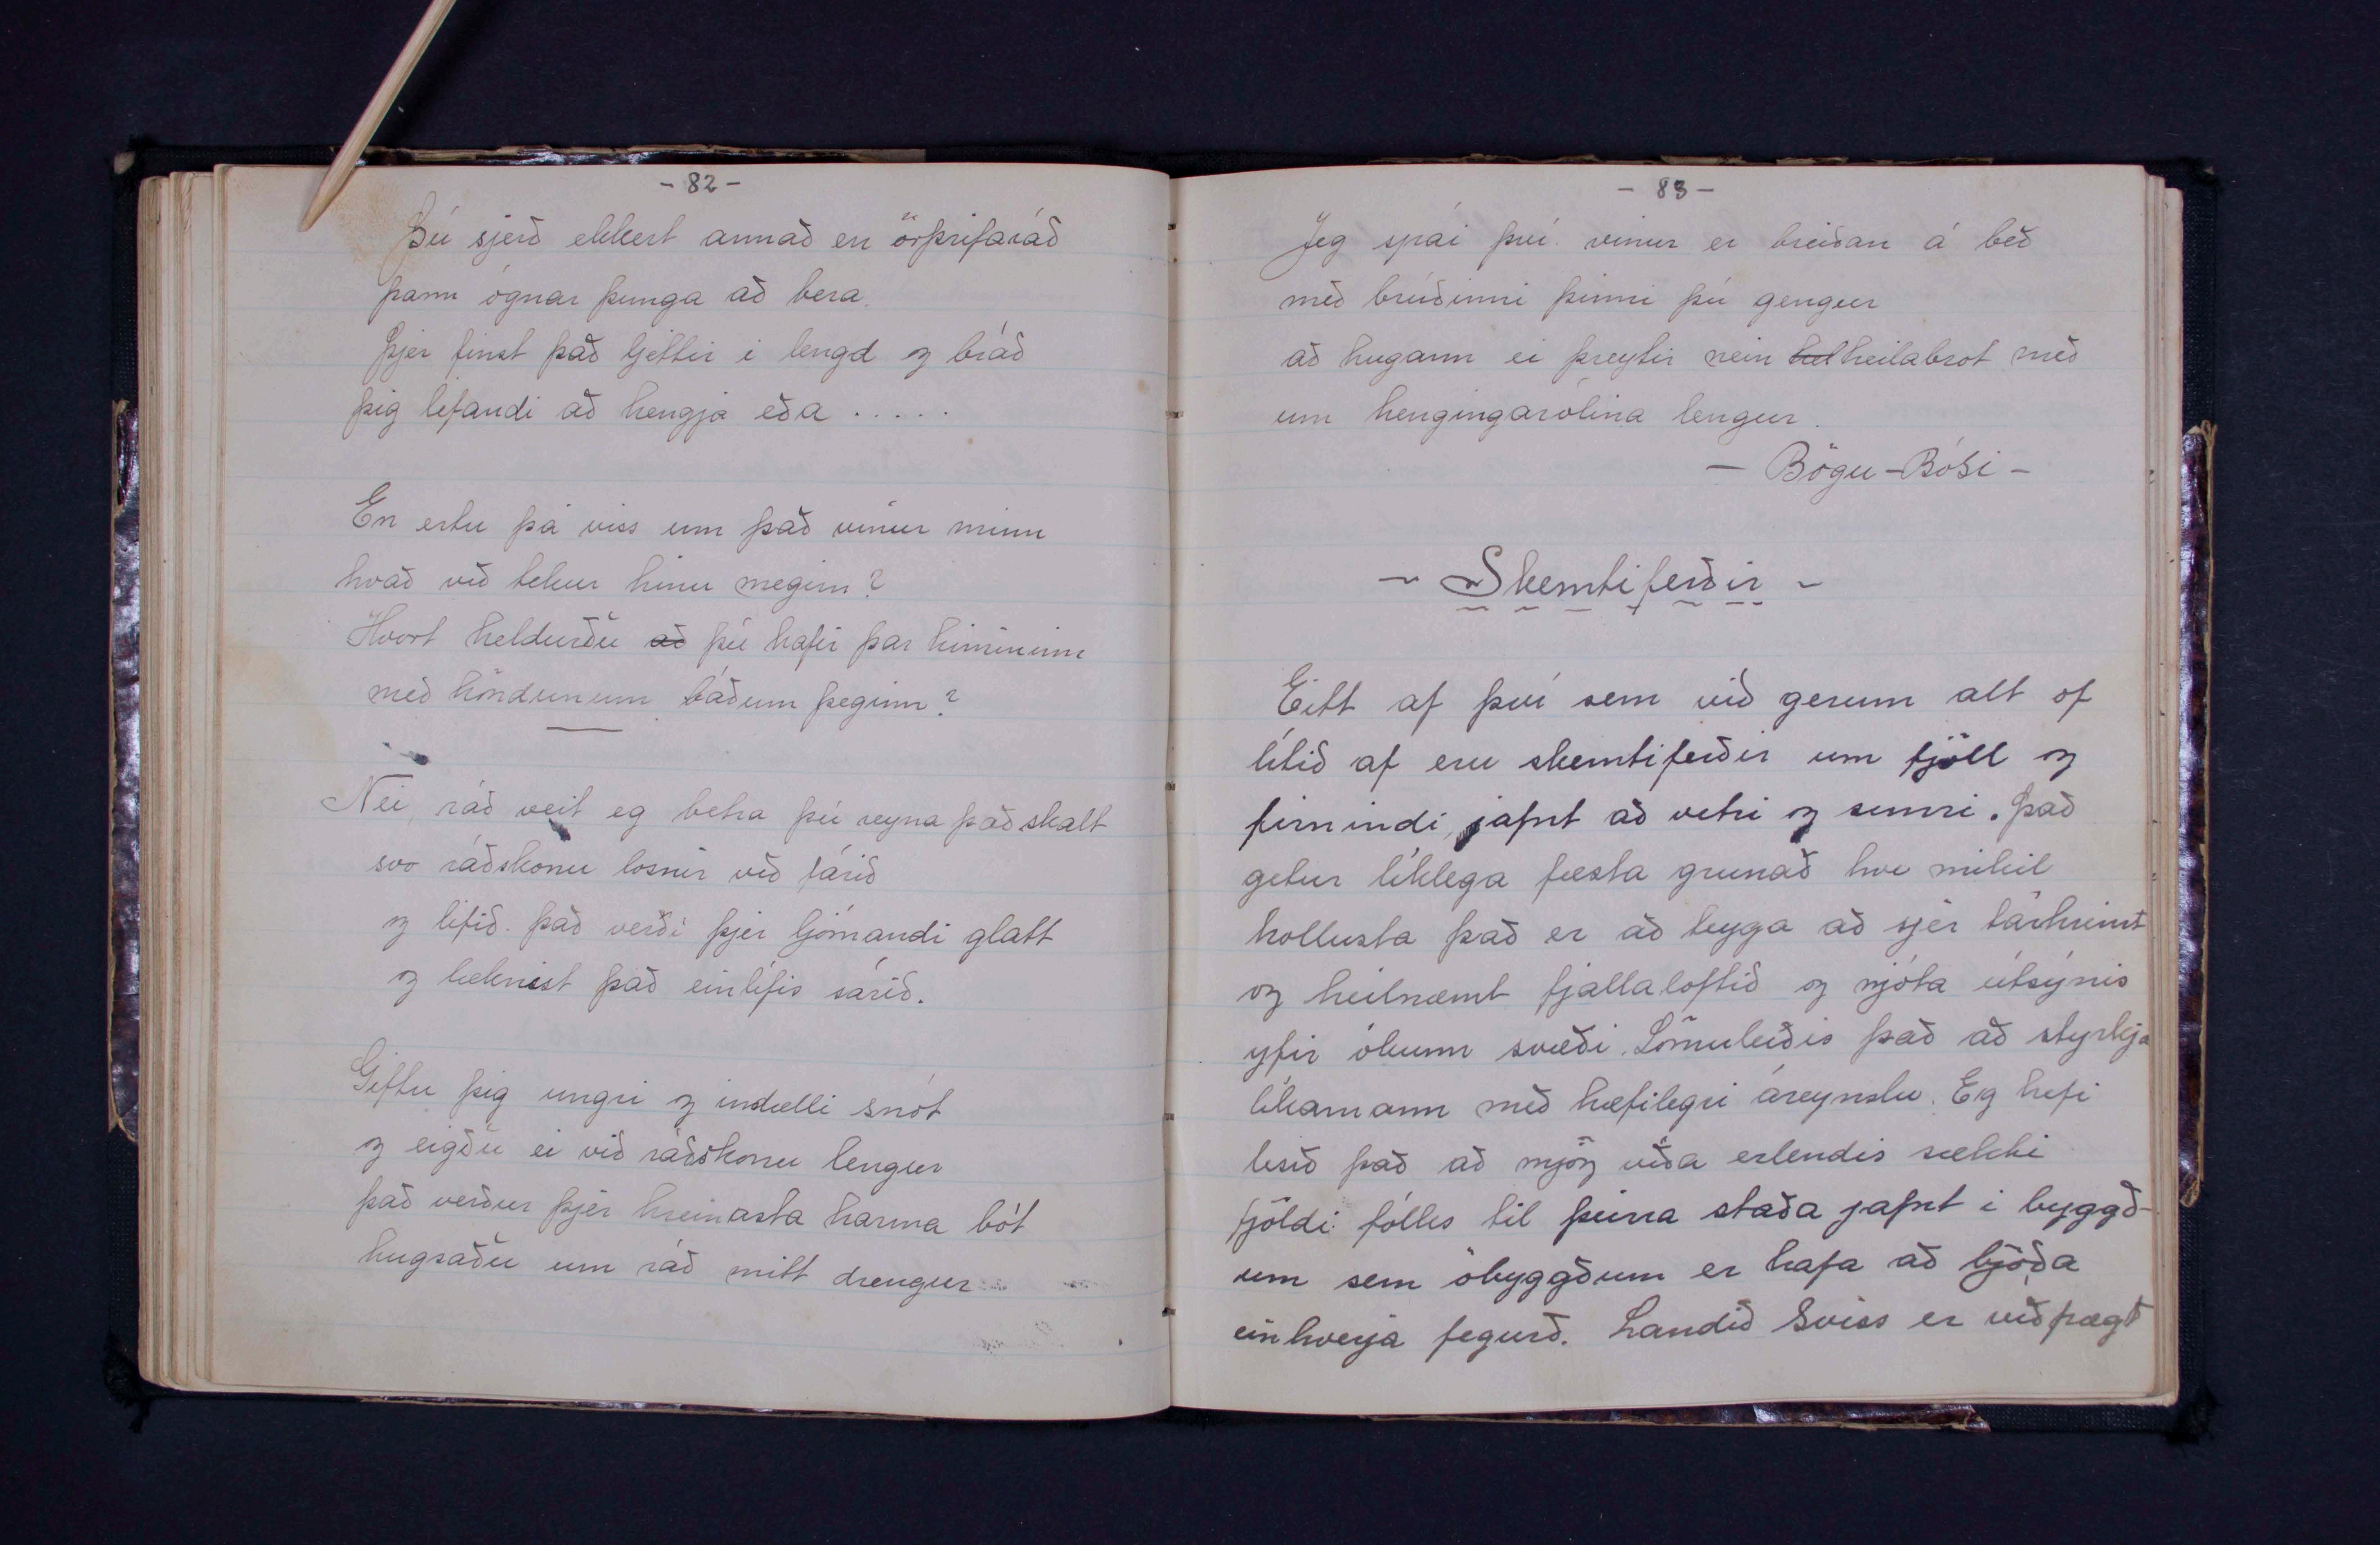 - 82 -
Þú sjerð ekkert annað en örþrifaráð
þann ógnar þunga að bera.
Þjer finst það ljettir i lengd og bráð
þig lifandi að hengja eða .....
En ertu þá viss um það vinur minn
hvað við tekur hinu megin?
Hvort heldurðu að þú hafir þar himininn
með höndunum báðum þeginn?
Nei, ráð veit eg betra þú reyna það skalt
svo ráðskonu losnir við fárið
og lifið. það verði þjer ljómandi glatt
og læknist það einlífis sárið.
Giftu þig ungri og indælli snót
og eigðu ei við ráðskonu lengur
það verður þjer hreinasta harma bót
hugsaðu um ráð mitt drengur
- 83 -
Jeg spái því vinur er breiðan á beð
með brúðinni þinni þú gengur
að hugann ei þreytir nein hel heilabrot með
um hengingarólina lengur.
- Bögu-Bósi -
~ Skemtiferðir ~
Eitt af því sem við gerum alt of
lítið af eru skemtiferðir um fjöll og
firnindi, jafnt að vetri og sumri. Það
getur líklega fæsta grunað hve mikil
hollusta það er að teyga að sjer tárhreint
og heilnæmt fjallaloftið og njóta útsýnis
yfir ókunn svæði. Sömuleiðis það að styrkja
líkamann með hæfilegri áreynslu. Eg hefi
lesið það að mjög víða erlendis sækki
fjöldi fólks til þeirra staða jafnt i byggð-
um sem óbyggðum er hafa að bjóða
einhverja fegurð. Landið Sviss er víðfrægt